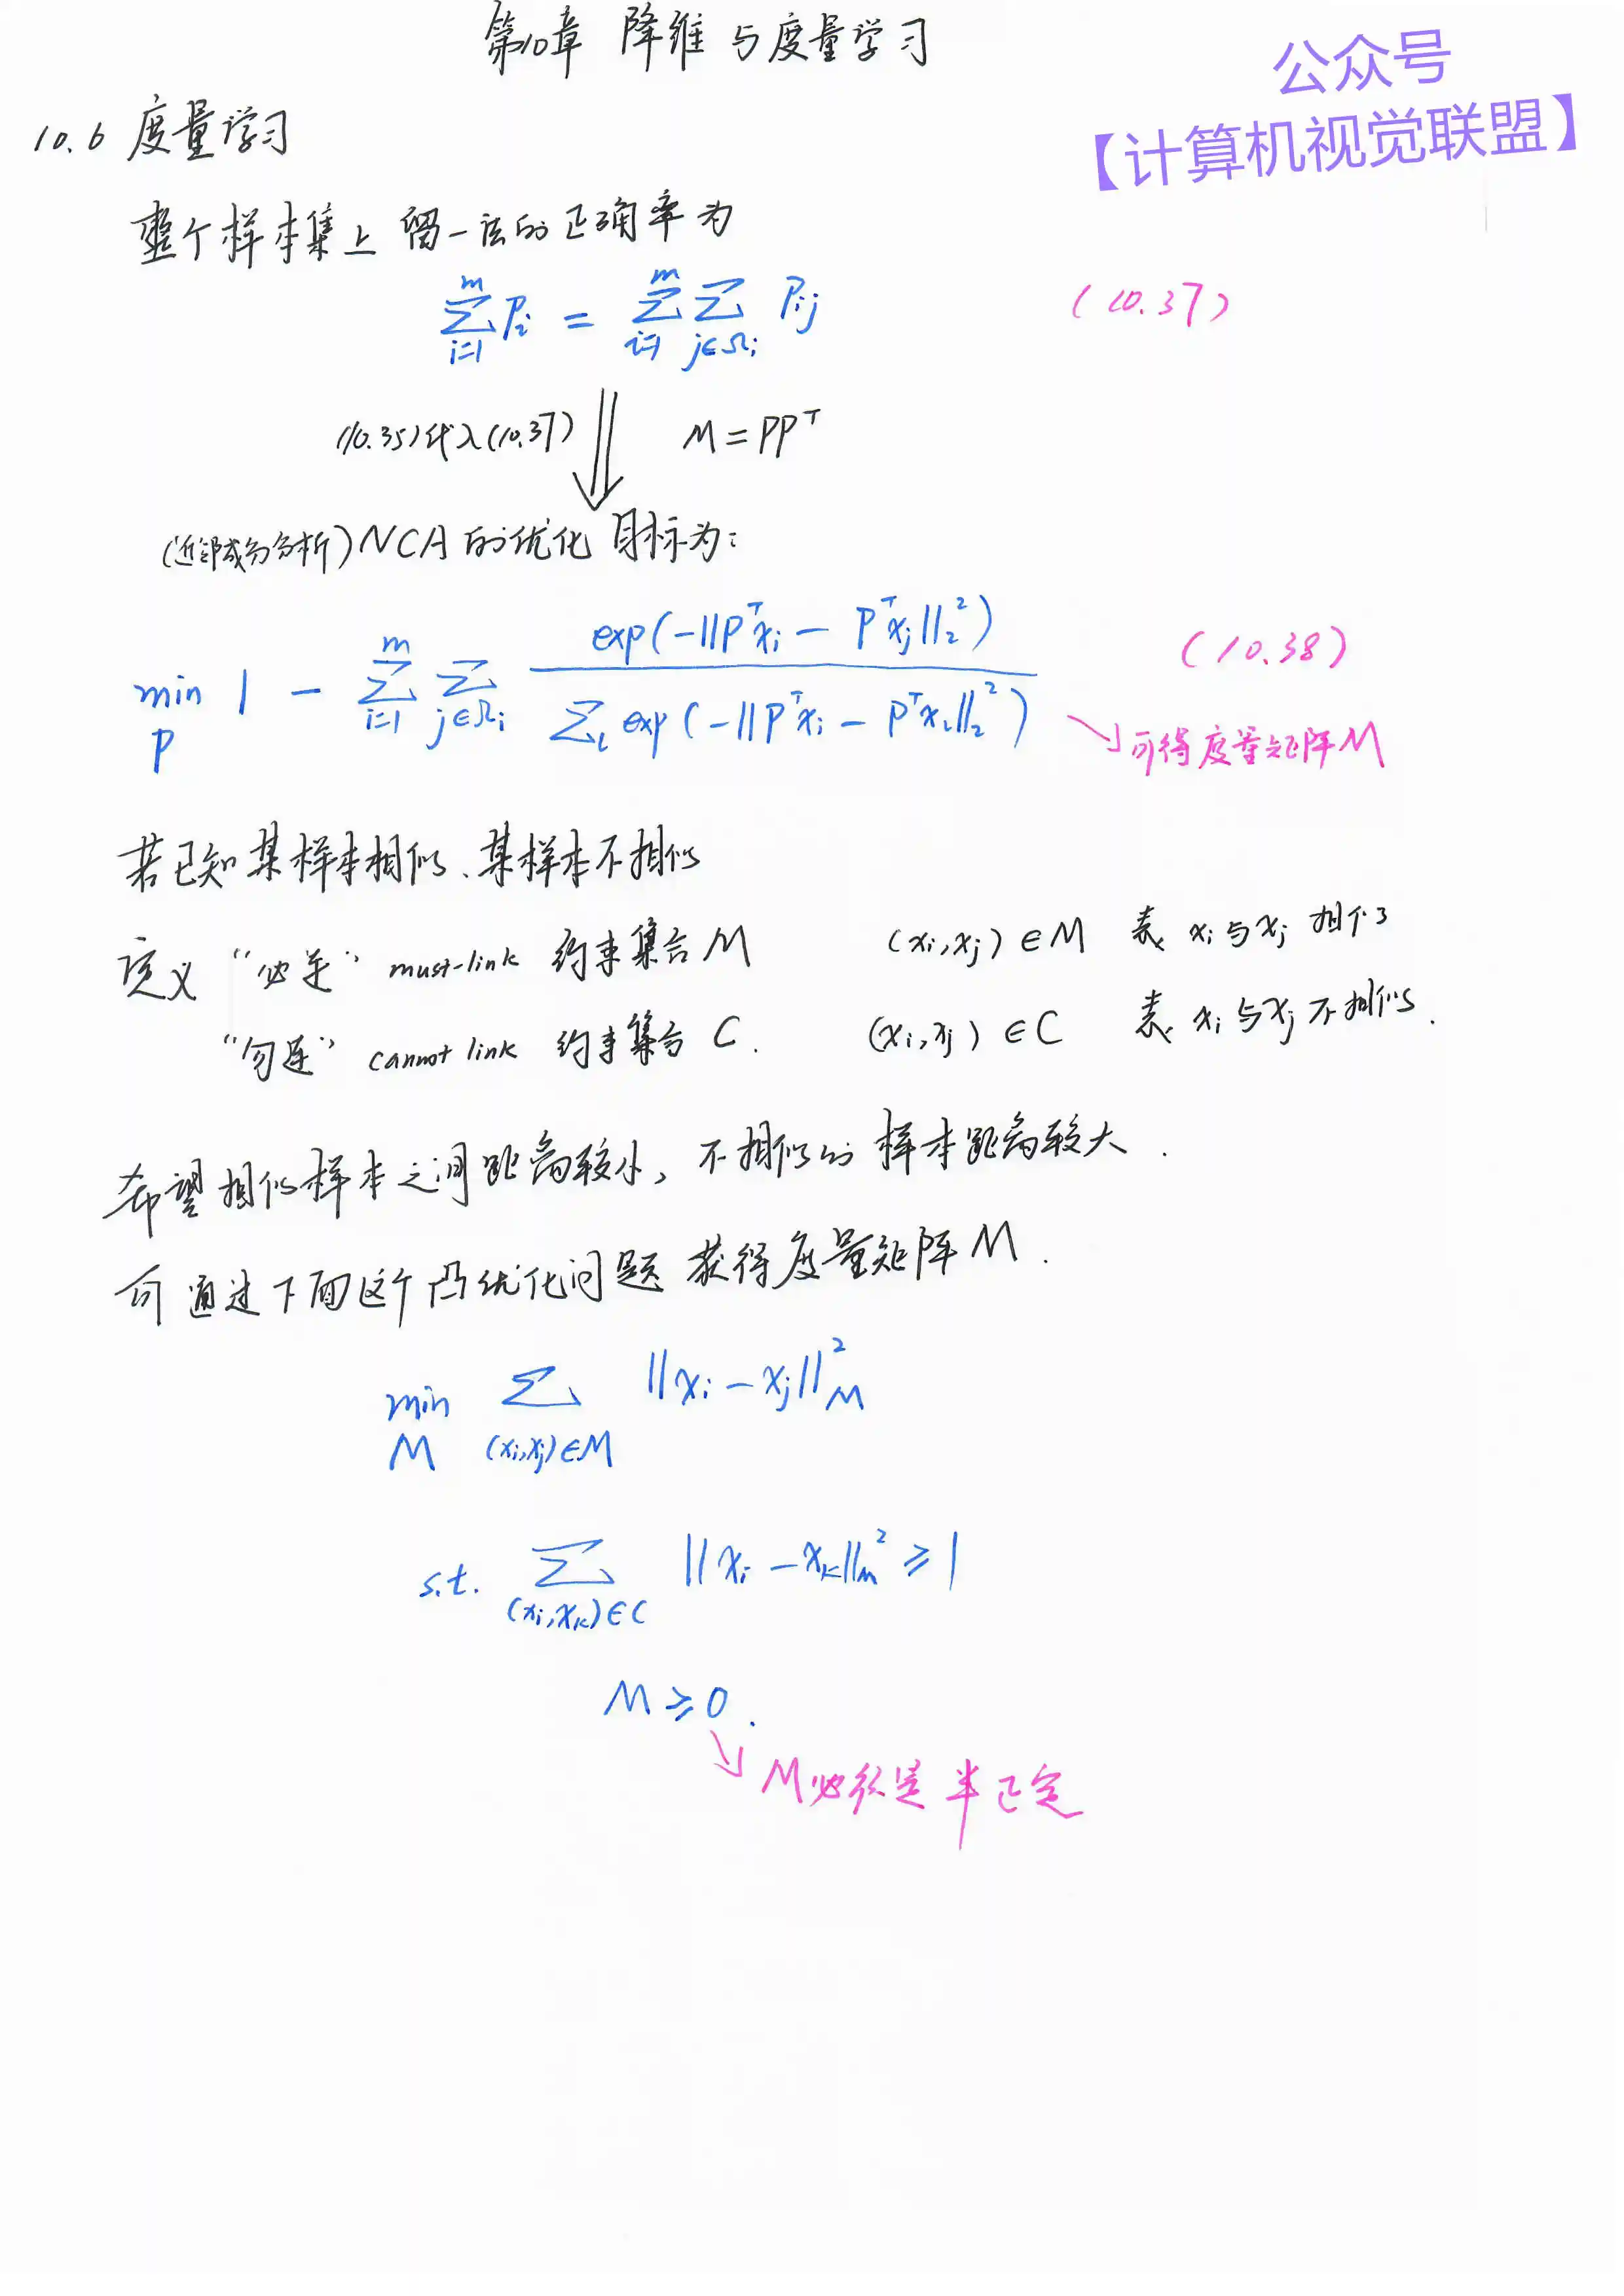 第10章 降维与度量学习
公众号
【计算机视觉联盟】
10.6 度量学习
整个样本集上留一法的正确率为
\sum_{i=1}^{m} P_i = \sum_{i=1}^{m} \sum_{j∈Ω_i} P_{ij} (10.37)
(10.35)代入(10.37) ⇓ M = PP^T
(近邻成分分析)NCA的优化目标为：
\min_P 1 - \sum_{i=1}^{m} \sum_{j∈Ω_i} \frac{exp(-||P^T x_i - P^T x_j||_2^2)}{\sum_l exp(-||P^T x_i - P^T x_l||_2^2)} (10.38)
↘可得度量矩阵M
若已知某样本相似、某样本不相似
定义 “必连” must-link 约束集合 M (x_i, x_j) ∈ M 表 x_i 与 x_j 相似
“勿连” cannot link 约束集合 C. (x_i, x_j) ∈ C 表 x_i 与 x_j 不相似.
希望相似样本之间距离较小, 不相似的样本距离较大.
可通过下面这个凸优化问题获得度量矩阵M.
\min_M \sum_{(x_i,x_j)∈M} ||x_i - x_j||_M^2
s.t. \sum_{(x_i,x_k)∈C} ||x_i - x_k||_M^2 ≥ 1
M ≥ 0.
↘ M必须是半正定